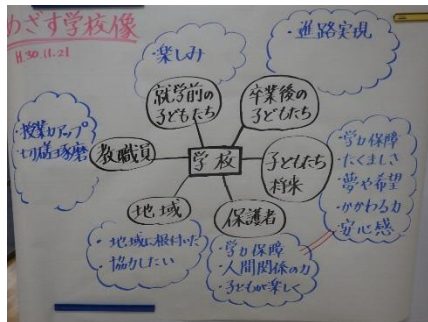 めざす学校像
H.30.11.21
・楽しみ
・進路実現
就学前の
子どもたち
卒業後の
子どもたち
・授業力アップ
・切磋琢磨
教職員
学校
子どもたち
将来
・学力保障
・たくましさ
・夢や希望
・かかわる力
・安心感
地域
保護者
・地域に根付いた
・協力したい
・学力保障
・人間関係の力
・子どもが楽しく